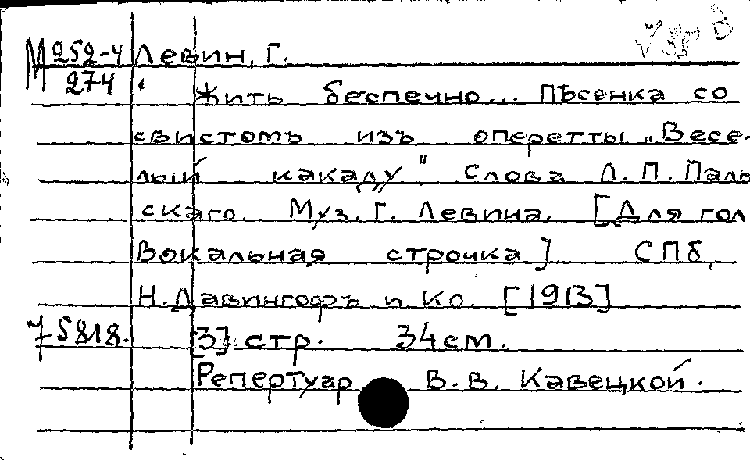 М 252-4 Левин, Г.
274
Жить беспечно... Пѣсенка со
свистомъ изъ оперетты „Весе-
лый какаду" Слова Л.П. Паль
скаго. Муз. Г. Левина. [Для гол
Вокальная строчка] СПб,
Н. Давингофъ и Ко. [1913]
7-5818. [3] стр. 34см.
Репертуар В.В. Кавецкой.